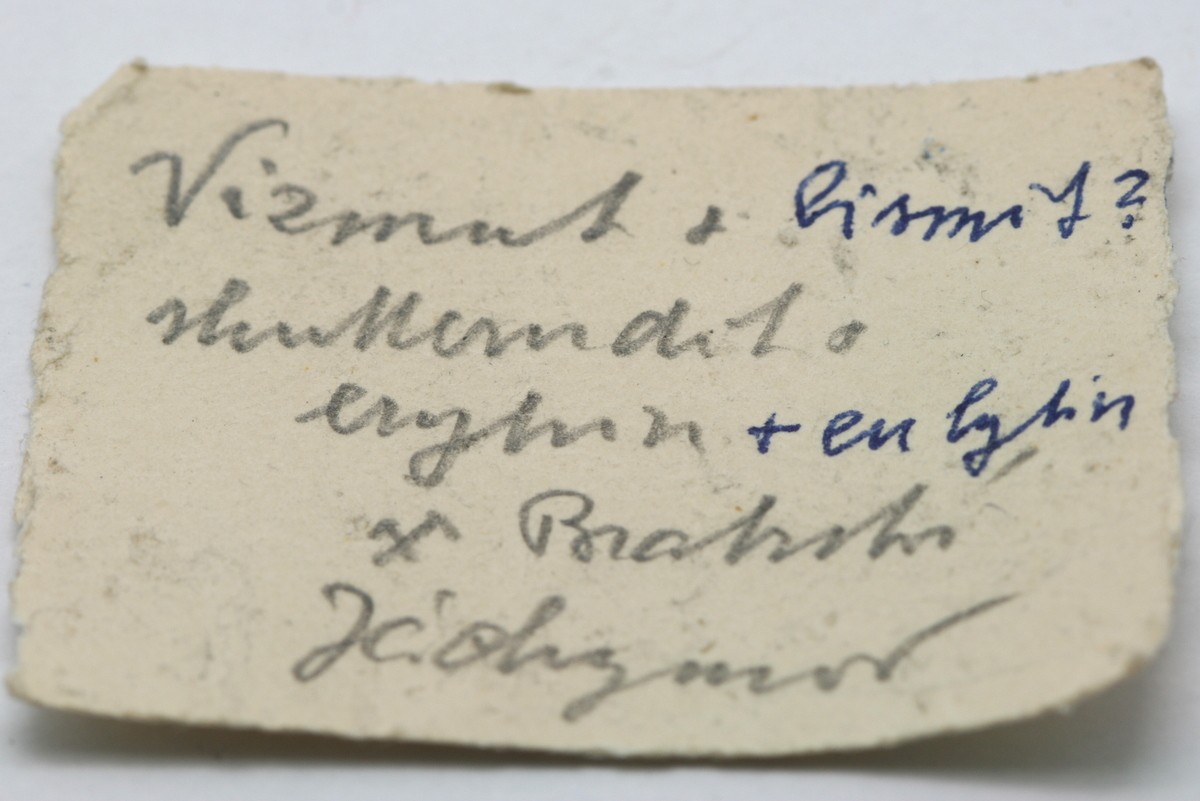 Vizmut + bismit?
skutterudit +
erytrin + eulytin
x Bratrství
Jáchymov